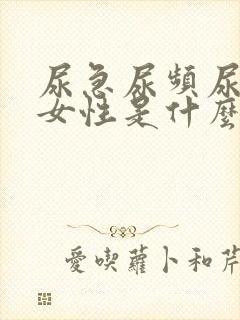 尿急尿頻尿
女性是什麼
愛喫蘿卜和芹